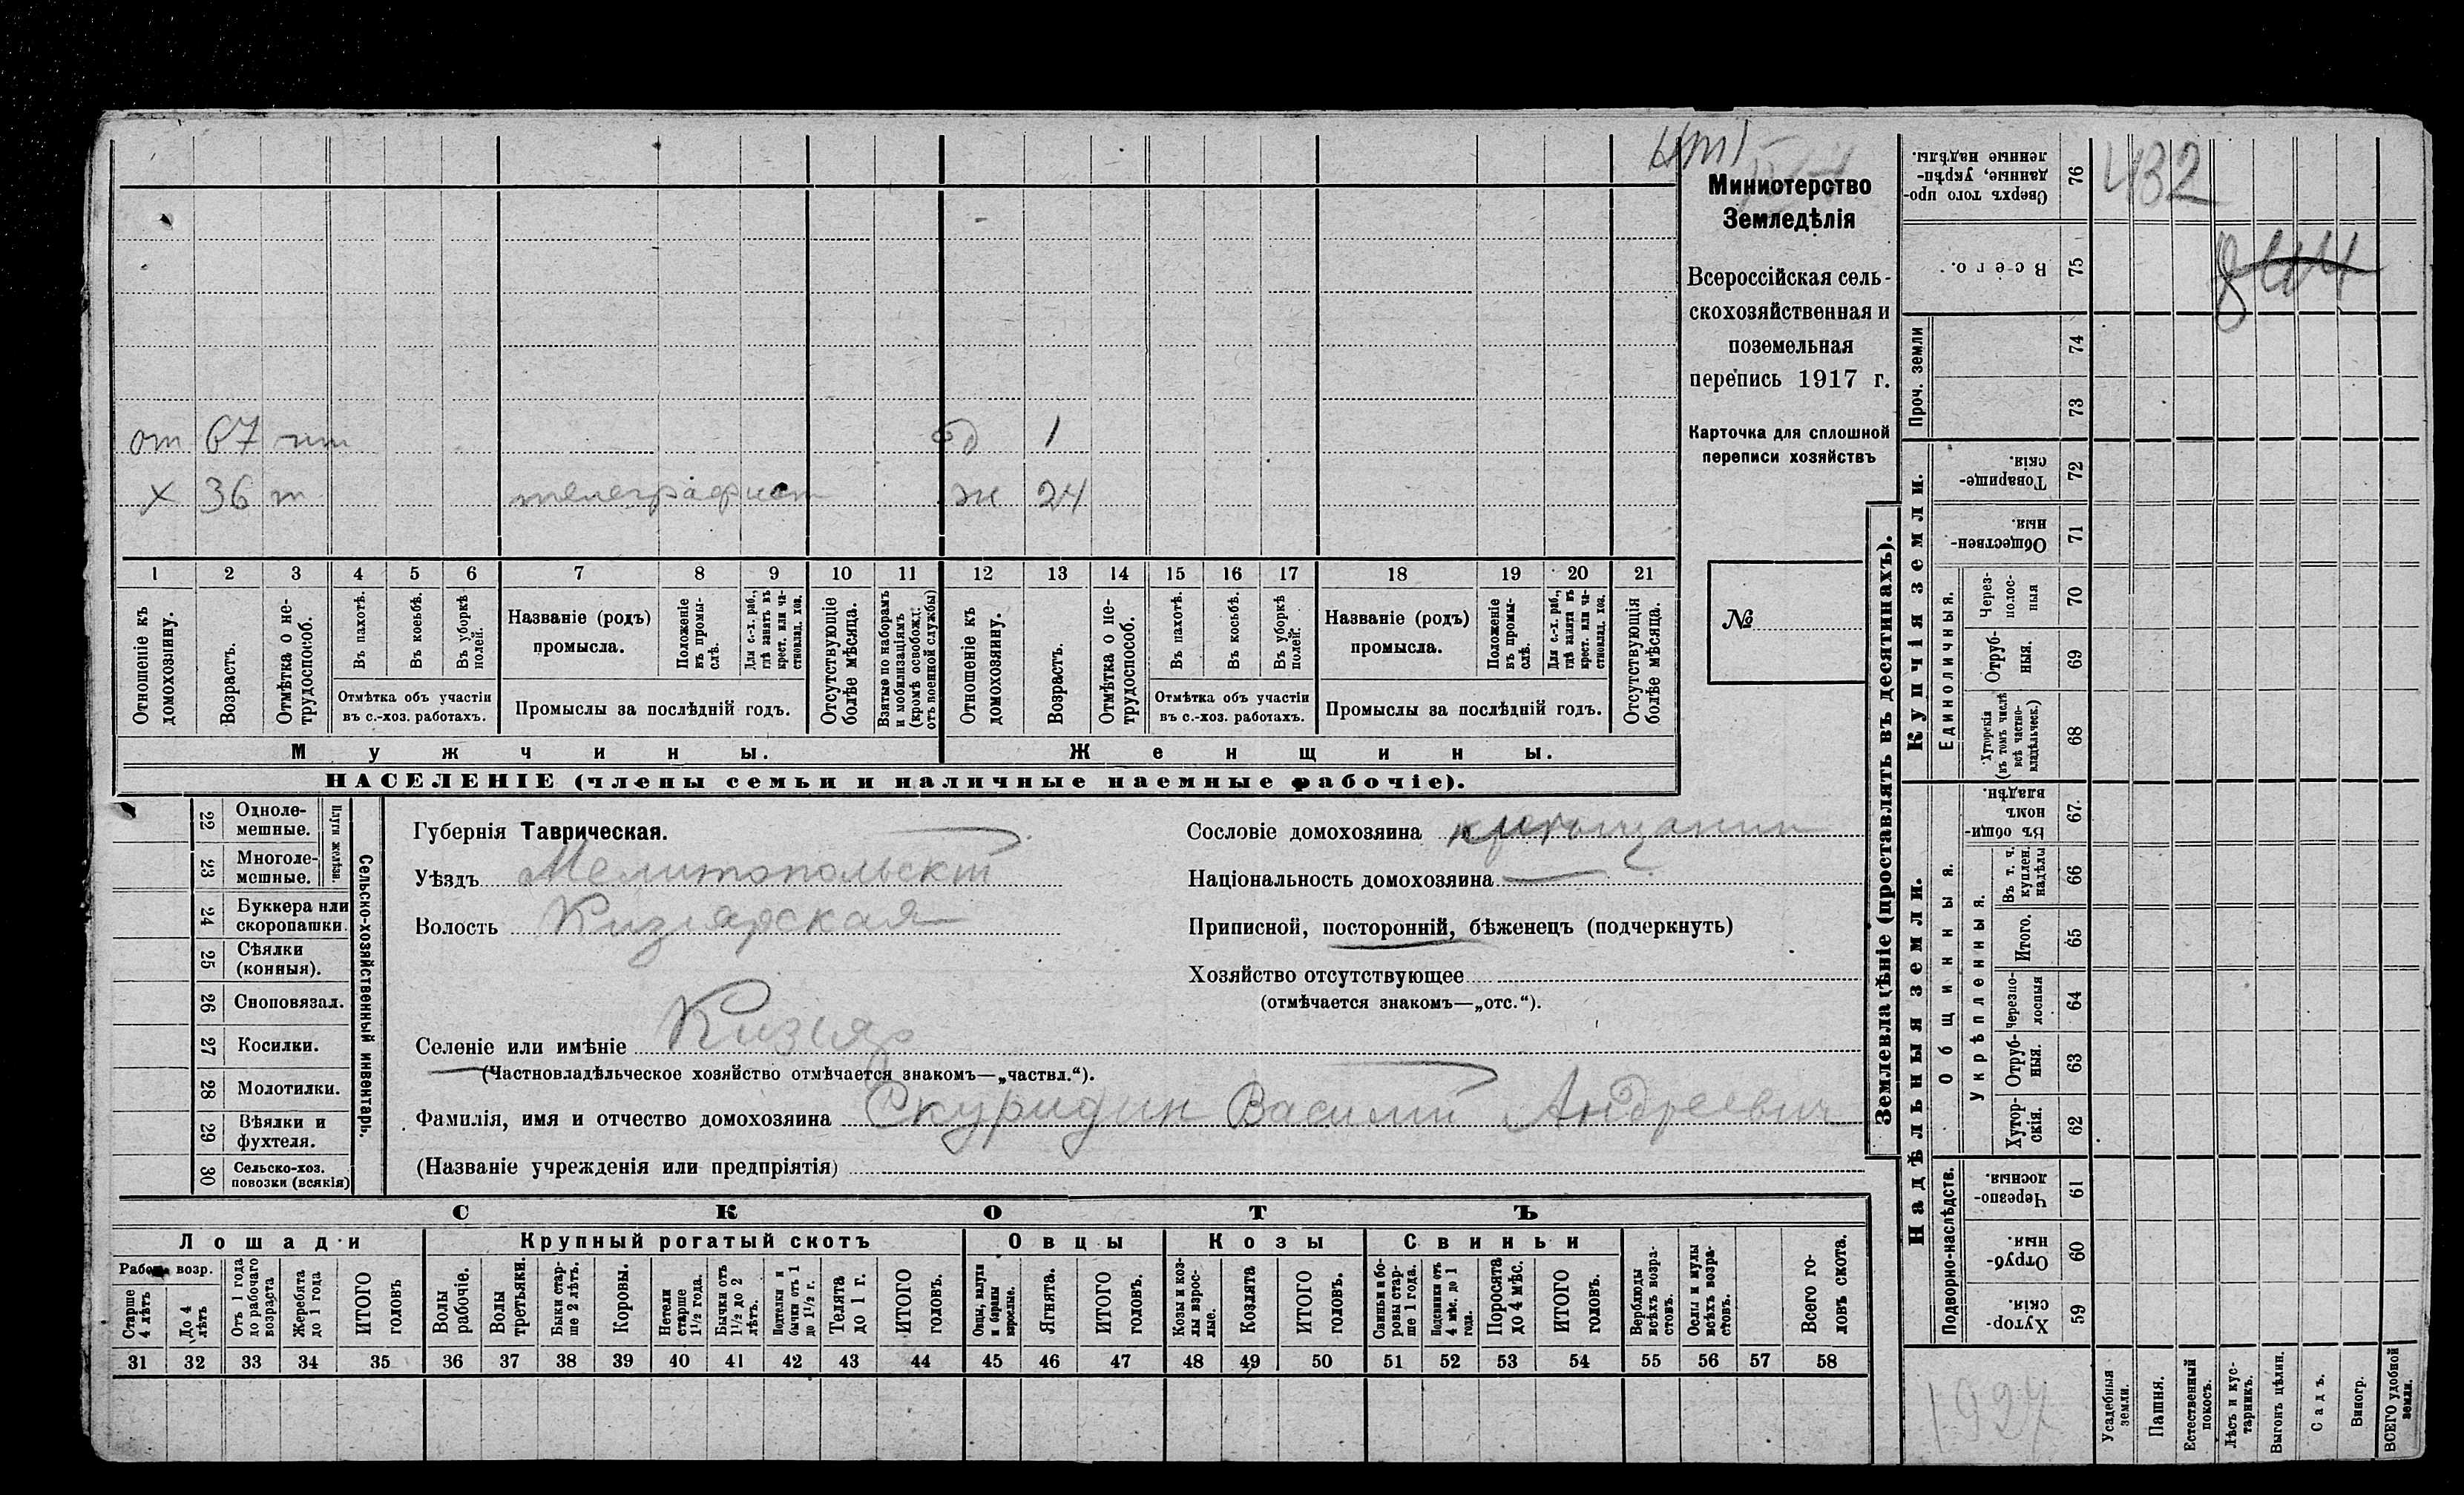 Министерство
Земледѣлія
Всероссійская сель-
скохозяйственная и
поземельная
перепись 1917 г.
Карточка для сплошной
переписи хозяйствъ
№
от 67 нт од 1
х 36 т телеграфист ж 24
1 2 3 4 5 6 7 8 9 10 11 12 13 14 15 16 17 18 19 20 21
Отношеніе къ домохозяину.
Возрастъ.
Отмѣтка о не-трудоспособ.
Въ пахотѣ.
Въ косьбѣ.
Въ уборкѣ полей.
Отмѣтка объ участіи
въ с.-хоз. работахъ.
Названіе (родъ)
промысла.
Положеніе въ промы-слѣ.
Для с.-х. раб., гдѣ занятъ въ крест. или ча-стновлад. хоз.
Промыслы за послѣдній годъ.
Отсутствующіе болѣе мѣсяца.
Взятые по наборамъ и мобилизаціямъ (кромѣ освобожд. отъ военной службы)
Отношеніе къ домохозяину.
Возрастъ.
Отмѣтка о не-трудоспособ.
Въ пахотѣ.
Въ косьбѣ.
Въ уборкѣ полей.
Отмѣтка объ участіи
въ с.-хоз. работахъ.
Названіе (родъ)
промысла.
Положеніе въ промы-слѣ.
Для с.-х. раб., гдѣ занята въ крест. или ча-стновлад. хоз.
Промыслы за послѣдній годъ.
Отсутствующія болѣе мѣсяца.
Мужчины. Женщины.
НАСЕЛЕНІЕ (члены семьи и наличные наемные рабочіе).
22 Одноле-мешные.
23 Многоле-мешные.
Плуги желѣзн.
24 Буккера или скоропашки.
25 Сѣялки (конныя).
26 Сноповязал.
27 Косилки.
28 Молотилки.
29 Вѣялки и фухтеля.
30 Сельско-хоз. повозки (всякія)
Сельско-хозяйственный инвентарь.
Губернія Таврическая.
Уѣздъ Мелитопольскій
Волость Кизіярская
Селеніе или имѣніе Кизіяр
(Частновладѣльческое хозяйство отмѣчается знакомъ—„частвл.“).
Фамилія, имя и отчество домохозяина Скуридин Василий Андреевич
(Названіе учрежденія или предпріятія)
Сословіе домохозяина
Національность домохозяина
Приписной, посторонній, бѣженецъ (подчеркнуть)
Хозяйство отсутствующее
(отмѣчается знакомъ—„отс.“).
СКОТЪ
Лошади Крупный рогатый скотъ Овцы Козы Свиньи
Рабоч. возр.
Старше 4 лѣтъ
До 4 лѣтъ
Отъ 1 года до рабочаго возраста
Жеребята до 1 года
ИТОГО головъ
Волы рабочіе.
Волы третьяки.
Быки стар-ше 2 лѣтъ.
Коровы.
Нетели старше 1½ года.
Бычки отъ 1½ до 2 лѣтъ.
Подтелки и бычки отъ 1 до 1½ г.
Телята до 1 г.
ИТОГО головъ.
Овцы, валухи и бараны взрослые.
Ягнята.
ИТОГО головъ.
Козы и коз-лы взрос-лые.
Козлята
ИТОГО головъ.
Свиньи и бо-ровы стар-ше 1 года.
Подсвинки отъ 4 мѣс. до 1 года.
Поросята до 4 мѣс.
ИТОГО головъ.
Верблюды всѣхъ возра-стовъ.
Ослы и мулы всѣхъ возра-стовъ.
Всего го-ловъ скота.
31 32 33 34 35 36 37 38 39 40 41 42 43 44 45 46 47 48 49 50 51 52 53 54 55 56 57 58
Землевладѣніе (проставлять въ десятинахъ).
432
Сверхъ того про-данные, укрѣп-ленные надѣлы. 76
Всего. 75
Проч. земли 74 73
Купчія земли.
Товарище-скія. 72
Обществен-ныя. 71
Единоличныя.
Через-полос-ныя 70
Отруб-ныя. 69
Хуторскія (въ томъ числѣ всѣ частно-владѣльческ.) 68
Надѣльныя земли.
Общинныя.
Въ общи-номъ владѣн. 67
Укрѣпленныя.
Въ т. ч. куплен. надѣлы 66
Итого. 65
Черезпо-лосныя 64
Отруб-ныя. 63
Хутор-скія. 62
Подворно-наслѣдств.
Черезпо-лосныя. 61
Отруб-ныя. 60
Хутор-скія. 59
1927
Усадебныя земли.
Пашня.
Естественный покосъ.
Лѣсъ и кус-тарникъ.
Выгонъ цѣлин.
Садъ.
Виногр.
ВСЕГО удобной земли.